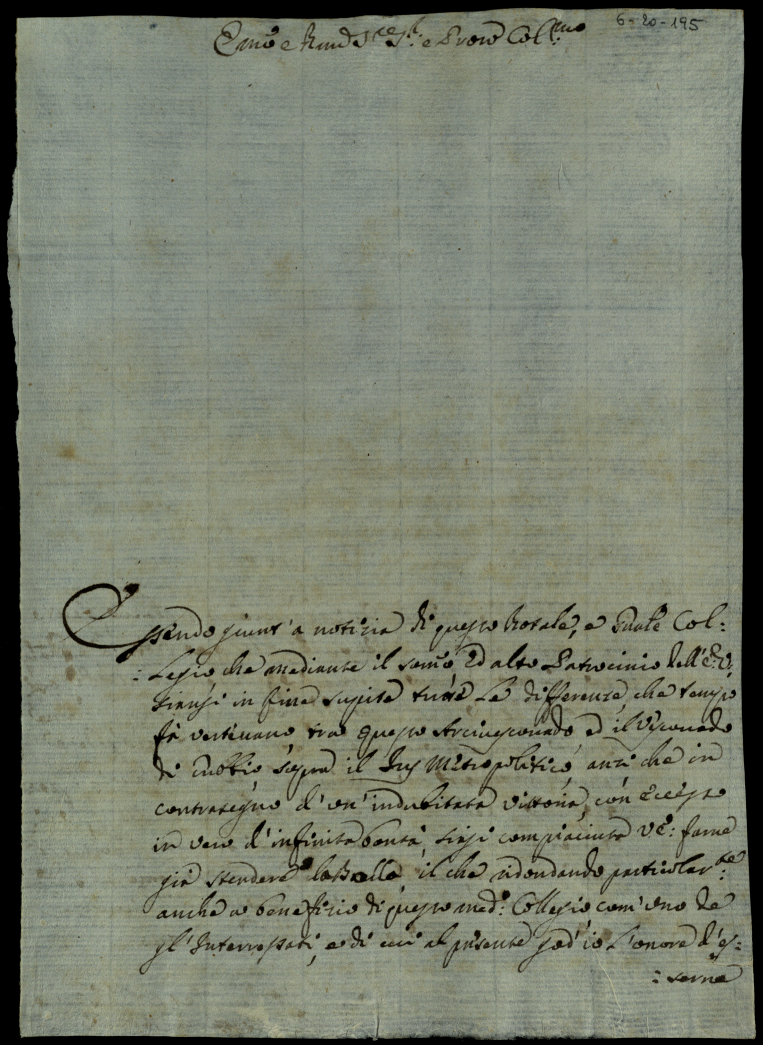 6-20-195
Emo e Rmd Sre Sr: e Prone Colmo
Essendo giunt'a notizia di questo Rotale, e Col:
:legio che mediante il somo ed alto Patrocinio dell'E: V:
siansi in fine sopite tutte le differenze, che tempo
fà vertivano tra questo Arcivescovado ed il Vescovado
di Gubbio sopra il Jus Metropolitico, anzi che in
contrasegno d'un'indubitata vittoria, con eccesso
in vero d'infinita bontà, siasi compiaciuta V E: farne
già stendere la Bolla il che ridondando particolarte:
anche a benefizio di questo medo: Collegio com'uno de
gl'Interessati, e di cui al presente god'io l'onore d'es:
:serne